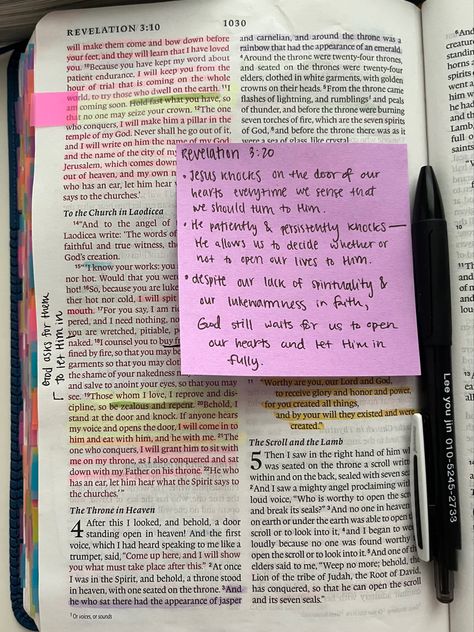 REVELATION 3:10
1030
will make them come and bow down before
your feet, and they will learn that I have loved
you. ¹⁰Because you have kept my word about
patient endurance, I will keep you from the
hour of trial that is coming on the whole
world, to try those who dwell on the earth. ¹¹I
am coming soon. Hold fast what you have, so
that no one may seize your crown. ¹²The one
who conquers, I will make him a pillar in the
temple of my God. Never shall he go out of it,
and I will write on him the name of my God,
and the name of the city of my
Jerusalem, which comes down
out of heaven, and my own
who has an ear, let him hear
says to the churches.'
To the Church in Laodicea
¹⁴"And to the angel of
Laodicea write: 'The words of
faithful and true witness, the
God's creation.
¹⁵"'I know your works: you
nor hot. Would that you were
hot! ¹⁶So, because you are luke
ther hot nor cold, I will spit
mouth. ¹⁷For you say, I am
pered, and I need nothing, no
you are wretched, pitiable,
naked. ¹⁸I counsel you to buy
fined by fire, so that you may
garments so that you may
the shame of your nakedness
and salve to anoint your eyes, so that you may
see. ¹⁹Those whom I love, I reprove and dis-
cipline, so be zealous and repent. ²⁰Behold,
I stand at the door and knock. If anyone hears
my voice and opens the door, I will come in to
him and eat with him, and he with me. ²¹The
one who conquers, I will grant him to sit with
me on my throne, as I also conquered and sat
down with my Father on his throne. ²²He who
has an ear, let him hear what the Spirit says to
the churches.'"
The Throne in Heaven
4 After this I looked, and behold, a door
standing open in heaven! And the first
voice, which I had heard speaking to me like a
trumpet, said, "Come up here, and I will show
you what must take place after this." ²At once
I was in the Spirit, and behold, a throne stood
in heaven, with one seated on the throne. ³And
he who sat there had the appearance of jasper
¹ Or voices, or sounds
God asks for them
to let Him in
and carnelian, and around the throne was a
rainbow that had the appearance of an emerald.
⁴Around the throne were twenty-four thrones,
and seated on the thrones were twenty-four
elders, clothed in white garments, with golden
crowns on their heads. ⁵From the throne came
flashes of lightning, and rumblings¹ and peals
of thunder, and before the throne were burning
seven torches of fire, which are the seven spirits
of God, ⁶and before the throne there was as it
were a sea of glass, like crystal.
Revelation 3:20
• Jesus knocks on the door of our
hearts everytime we sense that
we should turn to Him.
• He patiently & persistently knocks—
He allows us to decide whether or
not to open our lives to Him.
• despite our lack of spirituality &
our lukewarmness in faith,
God still waits for us to open
our hearts and let Him in
fully.
"Worthy are you, our Lord and God,
to receive glory and honor and power,
for you created all things,
and by your will they existed and were
created."
The Scroll and the Lamb
5 Then I saw in the right hand of him who
was seated on the throne a scroll written
within and on the back, sealed with seven
²And I saw a mighty angel proclaiming with
loud voice, "Who is worthy to open the scroll
and break its seals?" ³And no one in heaven
or on earth or under the earth was able to open
scroll or to look into it, ⁴and I began to weep
loudly because no one was found worthy
open the scroll or to look into it. ⁵And one of
elders said to me, "Weep no more; behold, the
Lion of the tribe of Judah, the Root of David,
has conquered, so that he can open the scroll
and its seven seals."
Lee you jin 010-5245-2733